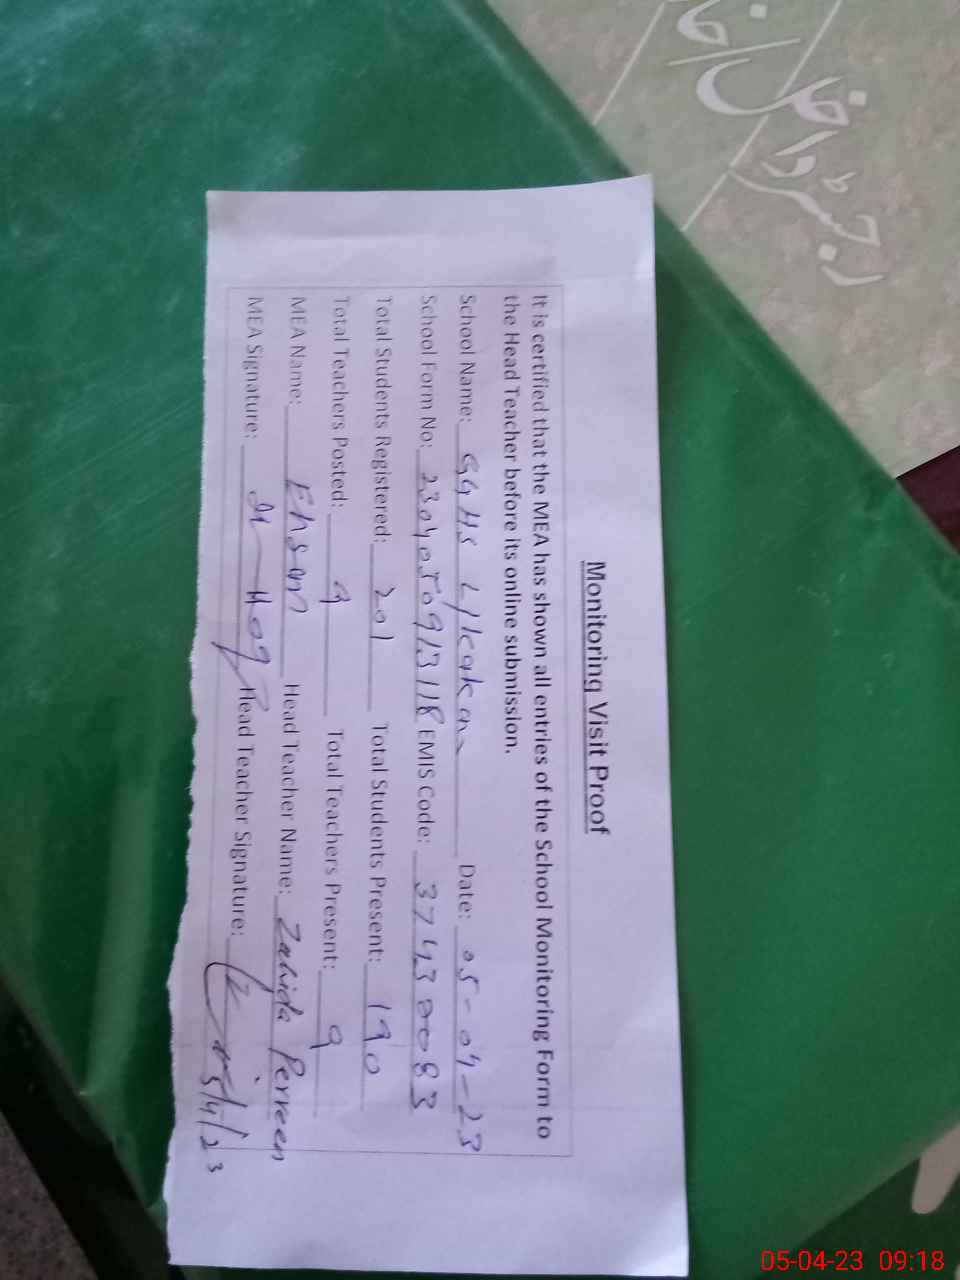 رجسٹر داخل
Monitoring Visit Proof
It is certified that the MEA has shown all entries of the School Monitoring Form to
the Head Teacher before its online submission.
School Name: GGHS Date: 05-04-23
School Form No: 2304050913118 EMIS Code: 37430083
Total Students Registered: 201 Total Students Present: 190
Total Teachers Posted: 9 Total Teachers Present: 9
MEA Name: Ehsan Head Teacher Name: Zahida Perveen
MEA Signature: Head Teacher Signature:
5/4/23
05-04-23 09:18